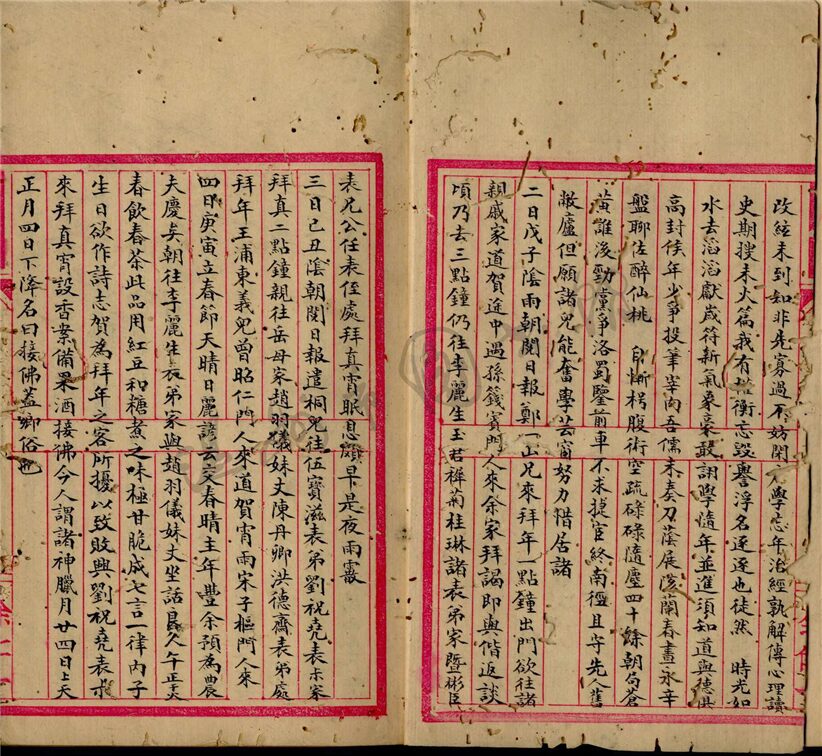 改絃未到如非先寡過不妨閒 學忘年治經孰解傳心理讀
史期搜未火篇我有權衡忘毀譽浮名逐逐也徒然 時光如
水去滔滔獻歲符新氣象豪敢詡學隨年並進須知道與德俱
高封侯年少爭投筆宰肉吾儒未奏刀蔭展滋蘭春晝永辛
盤聊佐醉仙桃 自慚枵腹術空疏碌碌隨塵四十餘朝局蒼
黃誰後勁黨爭洛蜀鑒前車不求捷宦終南徑且守先人舊
敝廬但願諸兒能奮學芸窗努力惜居諸
二日戊子陰雨朝閱日報鄭一山兄來拜年一點鐘出門欲往諸
親戚家道賀途中遇孫籛賓門人來余家拜謁即與偕返談
頃乃去三點鐘仍往李麗生玉君樨菊桂琳諸表弟家暨彬臣
表兄公任表侄處拜真宵眠息頗早是夜雨霰
三日己丑陰朝閱日報遣桐兒往伍寶滋表弟劉祝堯表叔家
拜真二點鐘親往岳母家趙羽儀妹丈陳丹卿洪德齋表弟處
拜年王浦東義兒曾昭仁門人來道賀宵雨宋子樞門人來
四日庚寅立春節天晴日麗諺云交春晴主年豐余預為農
夫慶矣朝往李麗生表弟家與趙羽儀妹丈坐話良久午正
春飲春茶此品用紅豆和糖煮之味極甘脆成七言一律內子
生日欲作詩志賀為拜年之客所擾以致敗興劉祝堯表叔
來拜真宵設香案備果酒接佛今人謂諸神臘月廿四日上天
正月四日下降名曰接佛蓋鄉俗也